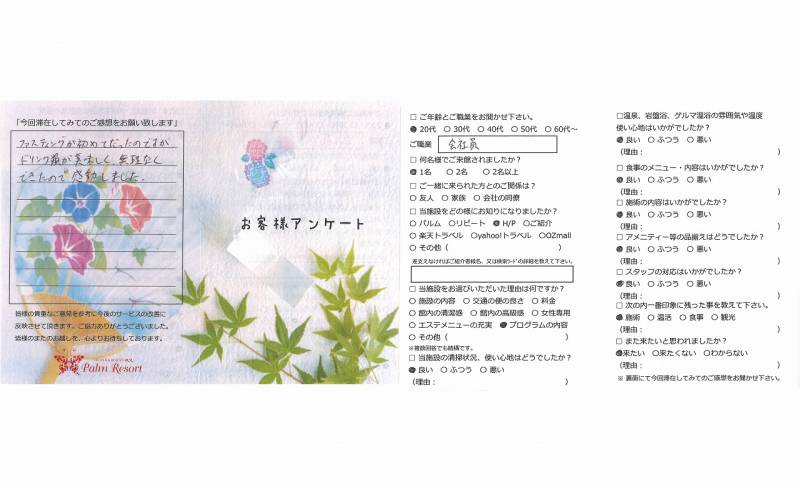 「今回滞在してみてのご感想をお願い致します」
ファスティングが初めてだったのですが
ドリンク類が美味しく、無理なく
できたので感動しました。
皆様の貴重なご意見を参考に今後のサービスの改善に
反映させて頂きます。ご協力ありがとうございました。
皆様のまたのお越しを、心よりお待ちしております。
Palm Resort
お客様アンケート
□ ご年齢とご職業をお聞かせ下さい。
● 20代 ○ 30代 ○ 40代 ○ 50代 ○ 60代～
ご職業 会社員
□ 何名様でご来館されましたか？
● 1名 ○ 2名 ○ 2名以上
□ ご一緒に来られた方とのご関係は？
○ 友人 ○ 家族 ○ 会社の同僚
□ 当施設をどの様にお知りになりましたか？
○ パルム ○リピート ● H/P ○ご紹介
○ 楽天トラベル ○yahoo!トラベル ○OZmall
○ その他（ ）
差支えなければご紹介者様名、又は検索ワードの詳細を教えて下さい。
□ 当施設をお選びいただいた理由は何ですか？
○ 施設の内容 ○ 交通の便の良さ ○ 料金
○ 館内の清潔感 ○ 館内の高級感 ○ 女性専用
○ エステメニューの充実 ● プログラムの内容
○ その他（ ）
※複数回答でも結構です。
□ 当施設の清掃状況、使い心地はどうでしたか？
● 良い ○ ふつう ○ 悪い
（理由： ）
□温泉、岩盤浴、ゲルマ温浴の雰囲気や温度
使い心地はいかがでしたか？
● 良い ○ ふつう ○ 悪い
（理由： ）
□ 食事のメニュー・内容はいかがでしたか？
● 良い ○ ふつう ○ 悪い
□ 施術の内容はいかがでしたか？
● 良い ○ ふつう ○ 悪い
□ アメニティー等の品揃えはどうでしたか？
● 良い ○ ふつう ○ 悪い
（理由： ）
□ スタッフの対応はいかがでしたか？
● 良い ○ ふつう ○ 悪い
（理由： ）
□ 次の内一番印象に残った事を教えて下さい。
● 施術 ○ 温活 ○ 食事 ○ 観光
□ また来たいと思われましたか？
●来たい ○来たくない ○わからない
（理由： ）
※ 裏面にて今回滞在してみてのご感想をお聞かせ下さい。